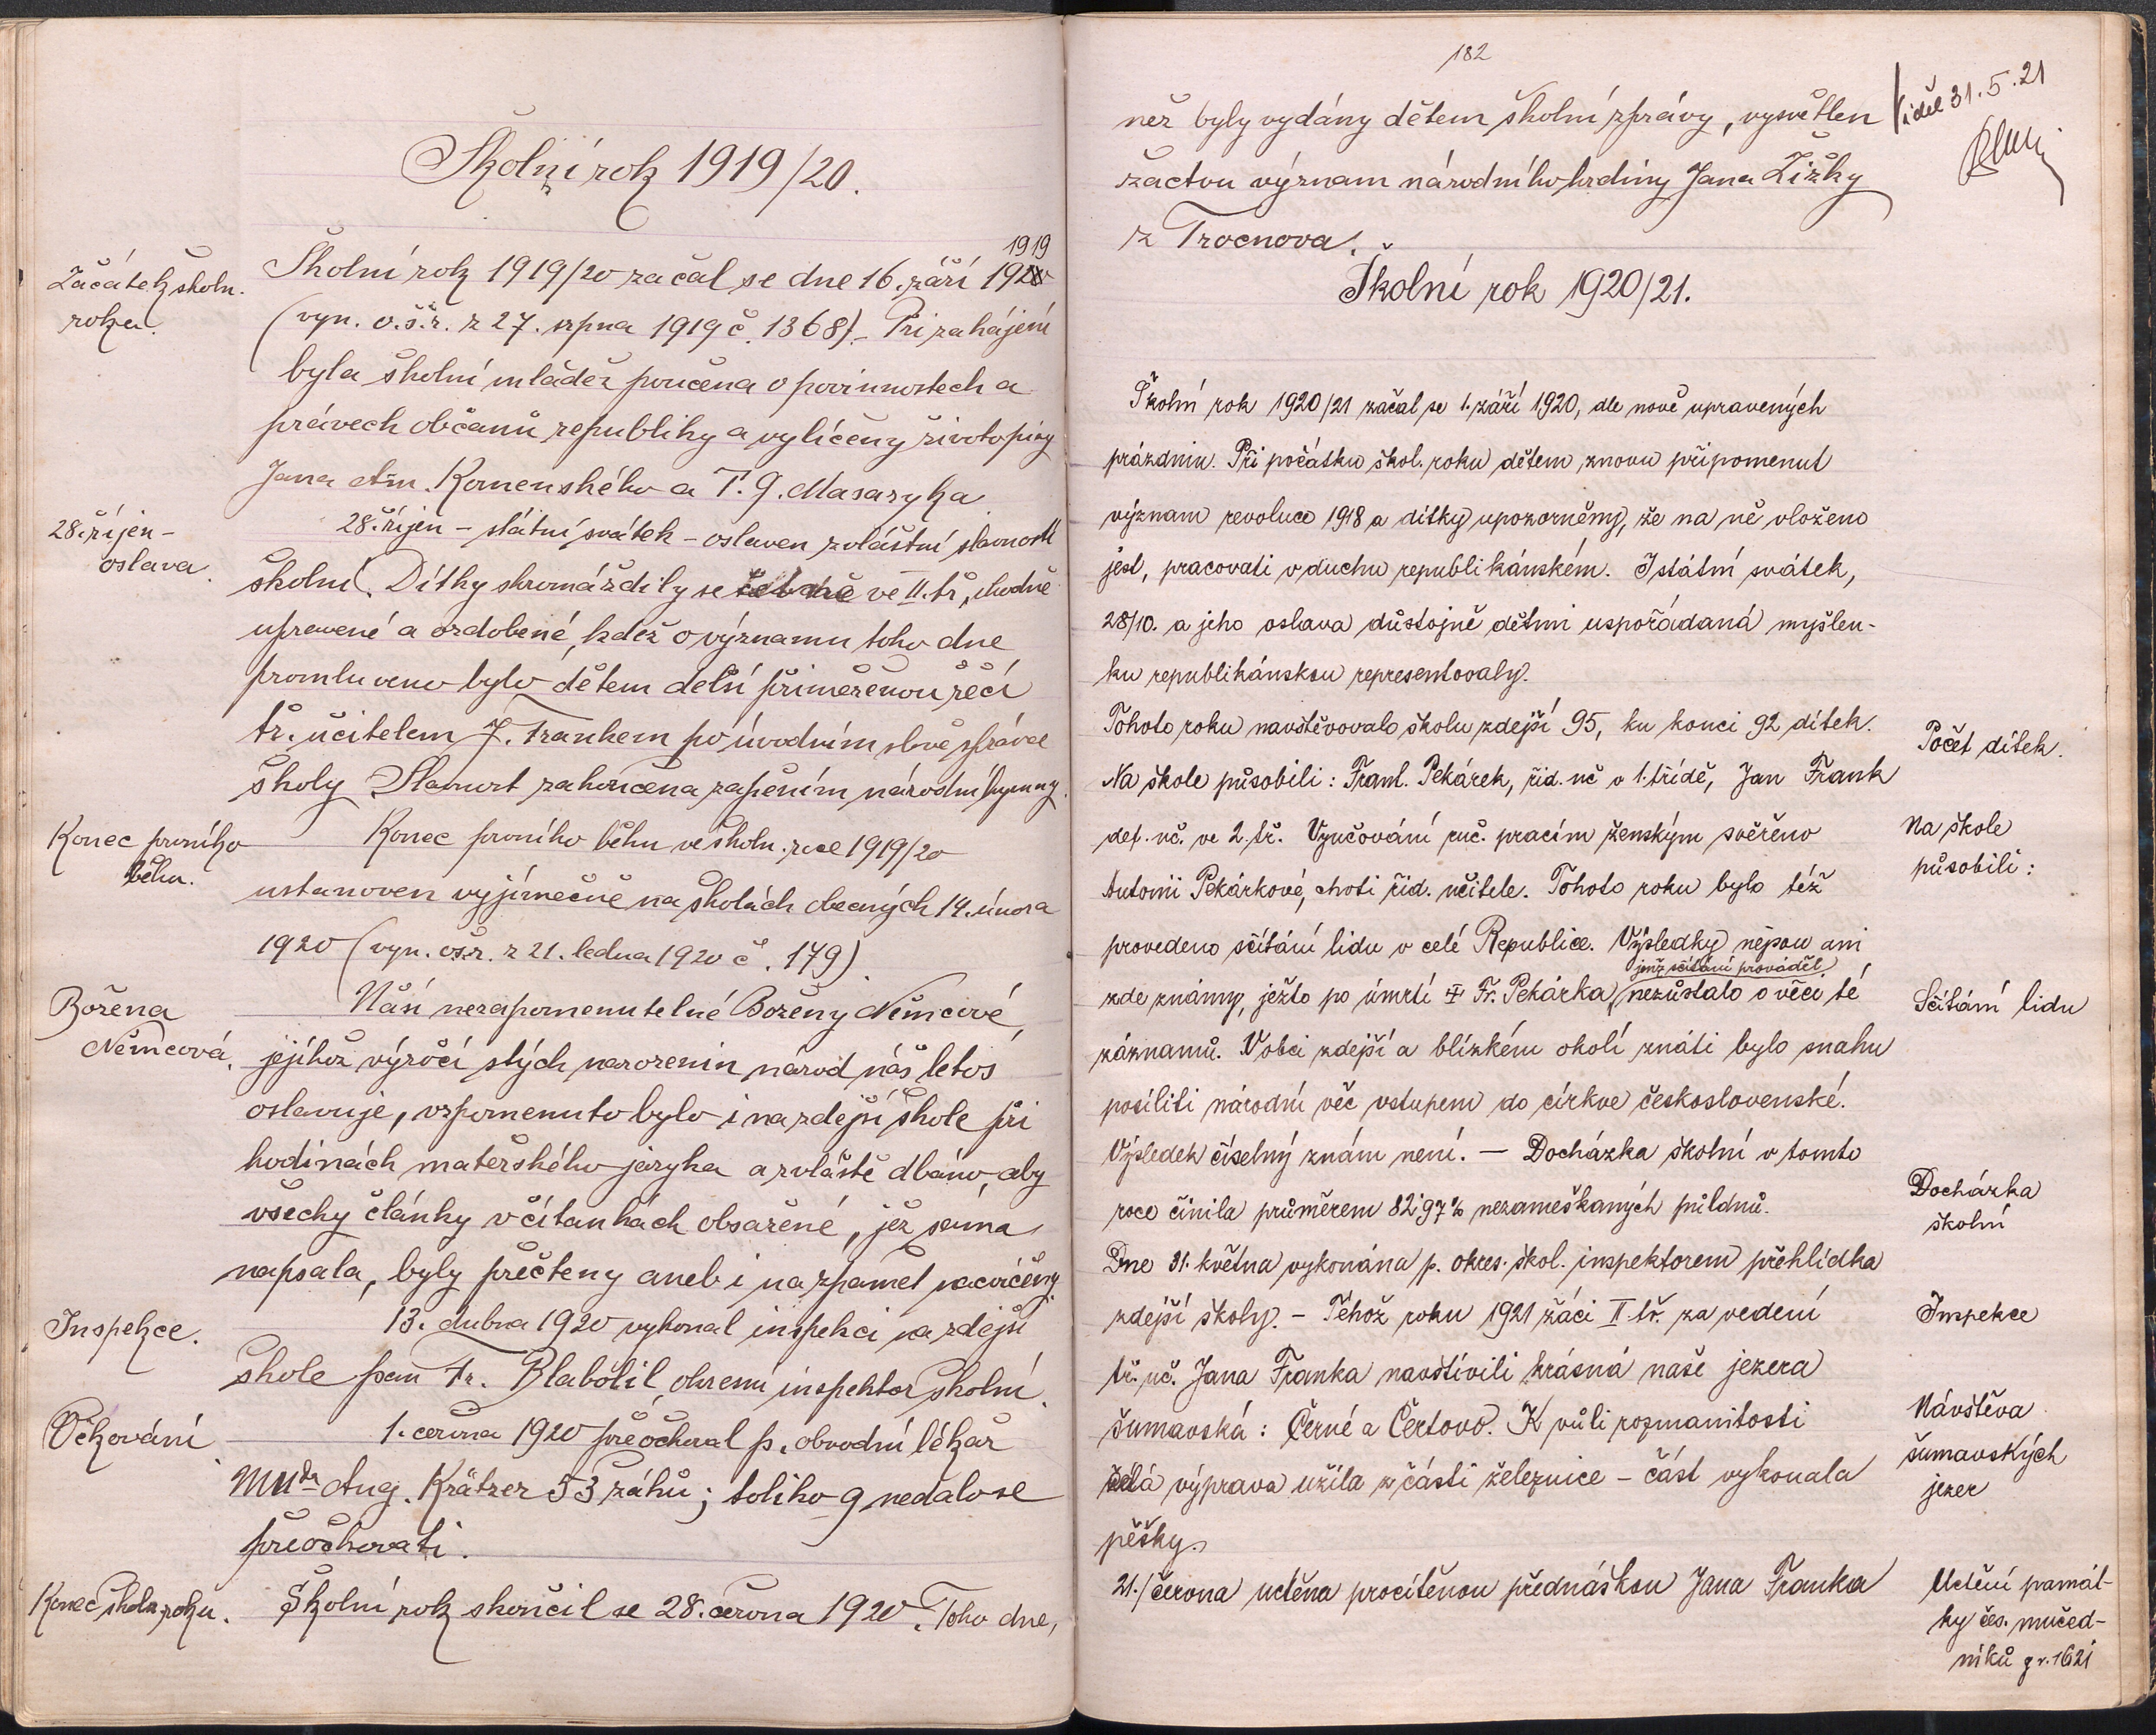 Školní rok 1919/20.
Začátek školn.
roku.
1919
Školní rok 1919/20 začal se dne 16. září 1920
(vyn. o.š.r. z 27. srpna 1919 č. 1368). – Při zahájení
byla školní mládež poučena o povinnostech a
právech občanů republiky a vylíčeny životopisy
Jana Am. Komenského a T. G. Masaryka.
28. říjen –
oslava.
28. říjen – státní svátek – oslaven zvláštní slavností
školní. Dítky shromáždily se ve II. tř., vhodně
upravené a ozdobené, kdež o významu toho dne
promluveno bylo dětem delší přiměřenou řečí
tř. učitelem J. Frankem po úvodním slově správce
školy. Slavnost zakončena zapěním národní hymny.
Konec prvního
běhu.
Konec prvního běhu ve školn. roce 1919/20
ustanoven vyjímečně na školách obecných 14. února
1920 (vyn. ošr. z 21. ledna 1920 č. 179).
Božena
Němcová.
Naší nezapomenutelné Boženy Němcové,
jejíhož výročí stých narozenin národ náš letos
oslavuje, vzpomenuto bylo i na zdejší škole při
hodinách mateřského jazyka a zvláště dbáno, aby
všechy články v čítankách obsažené, jež sama
napsala, byly přečteny aneb i na zpamět nacvičeny.
Inspekce.
13. dubna 1920 vykonal inspekci na zdejší
škole pan Fr. Blabolil, okresní inspektor školní.
Očkování.
1. června 1920 přeočkoval p. obvodní lékař
MUDr Aug. Krätzer 53 žáků; toliko 9 nedalo se
přeočkovati.
Konec školn. roku.
Školní rok skončil se 28. června 1920. Toho dne,
182
Viděl 31.5.21
než byly vydány dětem školní zprávy, vysvětlen
žactvu význam národního hrdiny Jana Žižky
z Trocnova.
Školní rok 1920/21.
Školní rok 1920/21 začal se 1. září 1920, dle nově upravených
prázdnin. Při počátku škol. roku dětem znovu připomenut
význam revoluce 1918 a dítky upozorněny, že na ně vloženo
jest, pracovati v duchu republikánském. I státní svátek,
28/10. a jeho oslava důstojně dětmi uspořádaná myšlen-
ku republikánskou representovaly.
Tohoto roku navštěvovalo školu zdejší 95, ku konci 92 dítek.
Počet dítek.
Na škole působili: Frant. Pekárek, říd. uč v 1. třídě, Jan Frank
def. uč. ve 2. tř. Vyučování ruč. pracím ženským svěřeno
Na škole
působili:
Antonii Pekárkové, choti říd. učitele. Tohoto roku bylo též
provedeno sčítání lidu v celé Republice. Výsledky nejsou ani
jenž sčítání prováděl,
zde známy, ježto po úmrtí Fr. Pekárka, nezůstalo o věci té
Sčítání lidu
záznamů. V obci zdejší a blízkém okolí znáti bylo snahu
posíliti národní věc vstupem do církve československé.
Výsledek číselný znám není. – Docházka školní v tomto
roce činila průměrem 82·97% nezameškaných půldnů.
Docházka
školní
Dne 31. května vykonána p. okres. škol. inspektorem přehlídka
zdejší školy. – Téhož roku 1921 žáci II tř. za vedení
Inspekce
tř. uč. Jana Franka navštívili krásná naše jezera
šumavská: Černé a Čertovo. K vůli rozmanitosti
celá výprava užila z části železnice – část vykonala
pěšky.
Návštěva
šumavských
jezer
21./června uctěna procítěnou přednáškou Jana Franka
Uctění památ-
ky čes. mučed-
níků z r. 1621